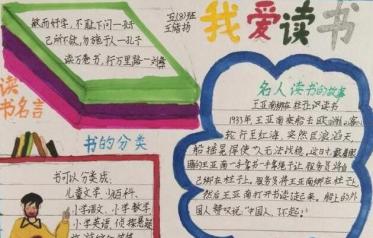 我爱读书
五(3)班
敏而好学，不耻下问—孔子
己所不欲，勿施于人—孔子
读万卷书，行万里路—刘彝
读书名言
书的分类
书可以分类成，
儿童文学，少儿百科，
小学语文，小学数学，
小学英语，侦探悬疑
名人读书的故事
王亚南绑在柱子上读书
1933年，王亚南乘船去欧洲。客
轮行至红海，突然巨浪滔天
船摇晃得使人无法站稳，这时，戴着眼
镜的王亚南一手拿书一手拿绳子让服务员将自
己绑在柱子上。服务员将王亚南绑在柱子上
然后王亚南打开书读起来。船上的外
国人赞叹说：“中国人，了不起！”